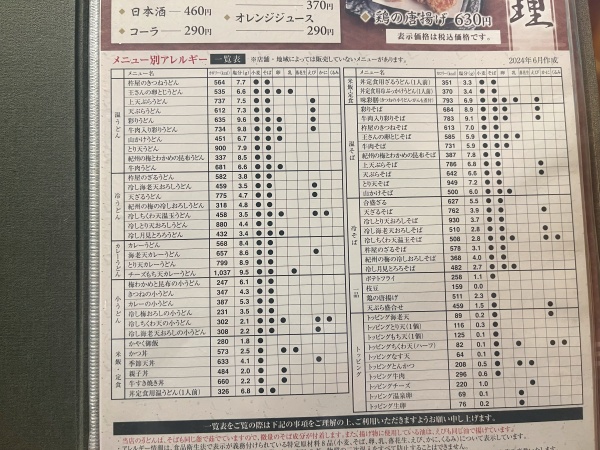 日本酒 — 460円
370円
オレンジジュース
コーラ — 290円
鶏の唐揚げ 630円
表示価格は税込価格です。
理
メニュー別アレルギー 一覧表 ※店舗・地域によっては販売していないメニューがあります。
2024年6月作成
メニュー名
温うどん
杵屋のきつねうどん 564 7.7 ● ●
王さんの卵とじうどん 535 6.6 ● ● ● ●
上天ぷらうどん 737 7.5 ● ● ●
天ぷらうどん 612 7.3 ● ● ●
彩りうどん 635 9.6 ● ● ●
牛肉入り彩りうどん 734 9.8 ● ● ●
山かけうどん 451 6.7 ● ● ●
とり天うどん 900 7.9 ● ●
紀州の梅とわかめの昆布うどん 337 8.5 ● ●
牛肉うどん 681 6.6 ● ● ●
冷うどん
杵屋のざるうどん 582 3.8 ● ●
冷し海老天おろしうどん 459 3.5 ● ● ●
天ざるうどん 775 4.7 ● ● ●
紀州の梅の冷しおろしうどん 318 4.8 ● ●
冷しちくわ天温玉うどん 458 3.5 ● ● ● ● ●
冷しとり天おろしうどん 880 4.4 ● ●
冷し月見とろろうどん 432 3.4 ● ● ●
カレーうどん
カレーうどん 568 8.4 ● ●
海老天カレーうどん 657 8.6 ● ● ●
とり天カレーうどん 799 8.9 ● ●
チーズもち天カレーうどん 1,037 9.5 ● ● ●
小うどん
梅わかめと昆布の小うどん 247 6.1
きつねの小うどん 347 4.3
カレーの小うどん 387 5.3
冷し梅おろしの小うどん 231 3.5
冷しちくわ天の小うどん 302 2.1
冷し海老天おろしの小うどん 308 2.2
米飯・定食
かやく御飯 280 1.8
かつ丼 573 2.5
季節天丼 633 4.1
親子丼 484 2.0
牛すき焼き丼 660 2.2
丼定食用温うどん(1人前) 326 6.8
メニュー名
米飯・定食
丼定食用ざるうどん(1人前) 351 3.3
丼定食用冷ぶっかけうどん(1人前) 370 3.4
味彩膳 793 6.9
温そば
天ぷらそば 674 8.9
牛肉入り彩りそば 783 9.1
杵屋のきつねそば 613 7.0
王さんの卵とじそば 585 5.9
牛肉そば 731 5.9
紀州の梅とわかめの昆布そば 387 7.8
上天ぷらそば 786 6.8
天ぷらそば 642 6.6
とり天そば 949 7.2
山かけそば 500 6.0
冷そば
合盛ざる 627 5.5
天ざるそば 762 3.9
冷しとり天おろしそば 930 3.7
冷し海老天おろしそば 510 2.8
冷しちくわ天温玉そば 508 2.8
杵屋のざるそば 578 3.1
紀州の梅の冷しおろしそば 368 4.0
冷し月見とろろそば 482 2.7
一品
ポテトフライ 258 1.1
枝豆 159 0.0
鶏の唐揚げ 511 2.3
天ぷら盛合せ 459 1.5
トッピング
トッピング海老天 89 0.2
トッピングとり天(1個) 116 0.3
トッピングもち天(1個) 125 0.1
トッピングちくわ天(ハーフ) 82 0.1
トッピングなす天 64 0.1
トッピングとんかつ 208 0.5
トッピング牛肉 296 0.6
トッピングチーズ 220 1.0
トッピング温泉卵 69 0.1
トッピング生卵 76 0.2
一覧表をご覧の際は下記の事項をご理解の上、ご利用いただきますようお願い申し上げます。